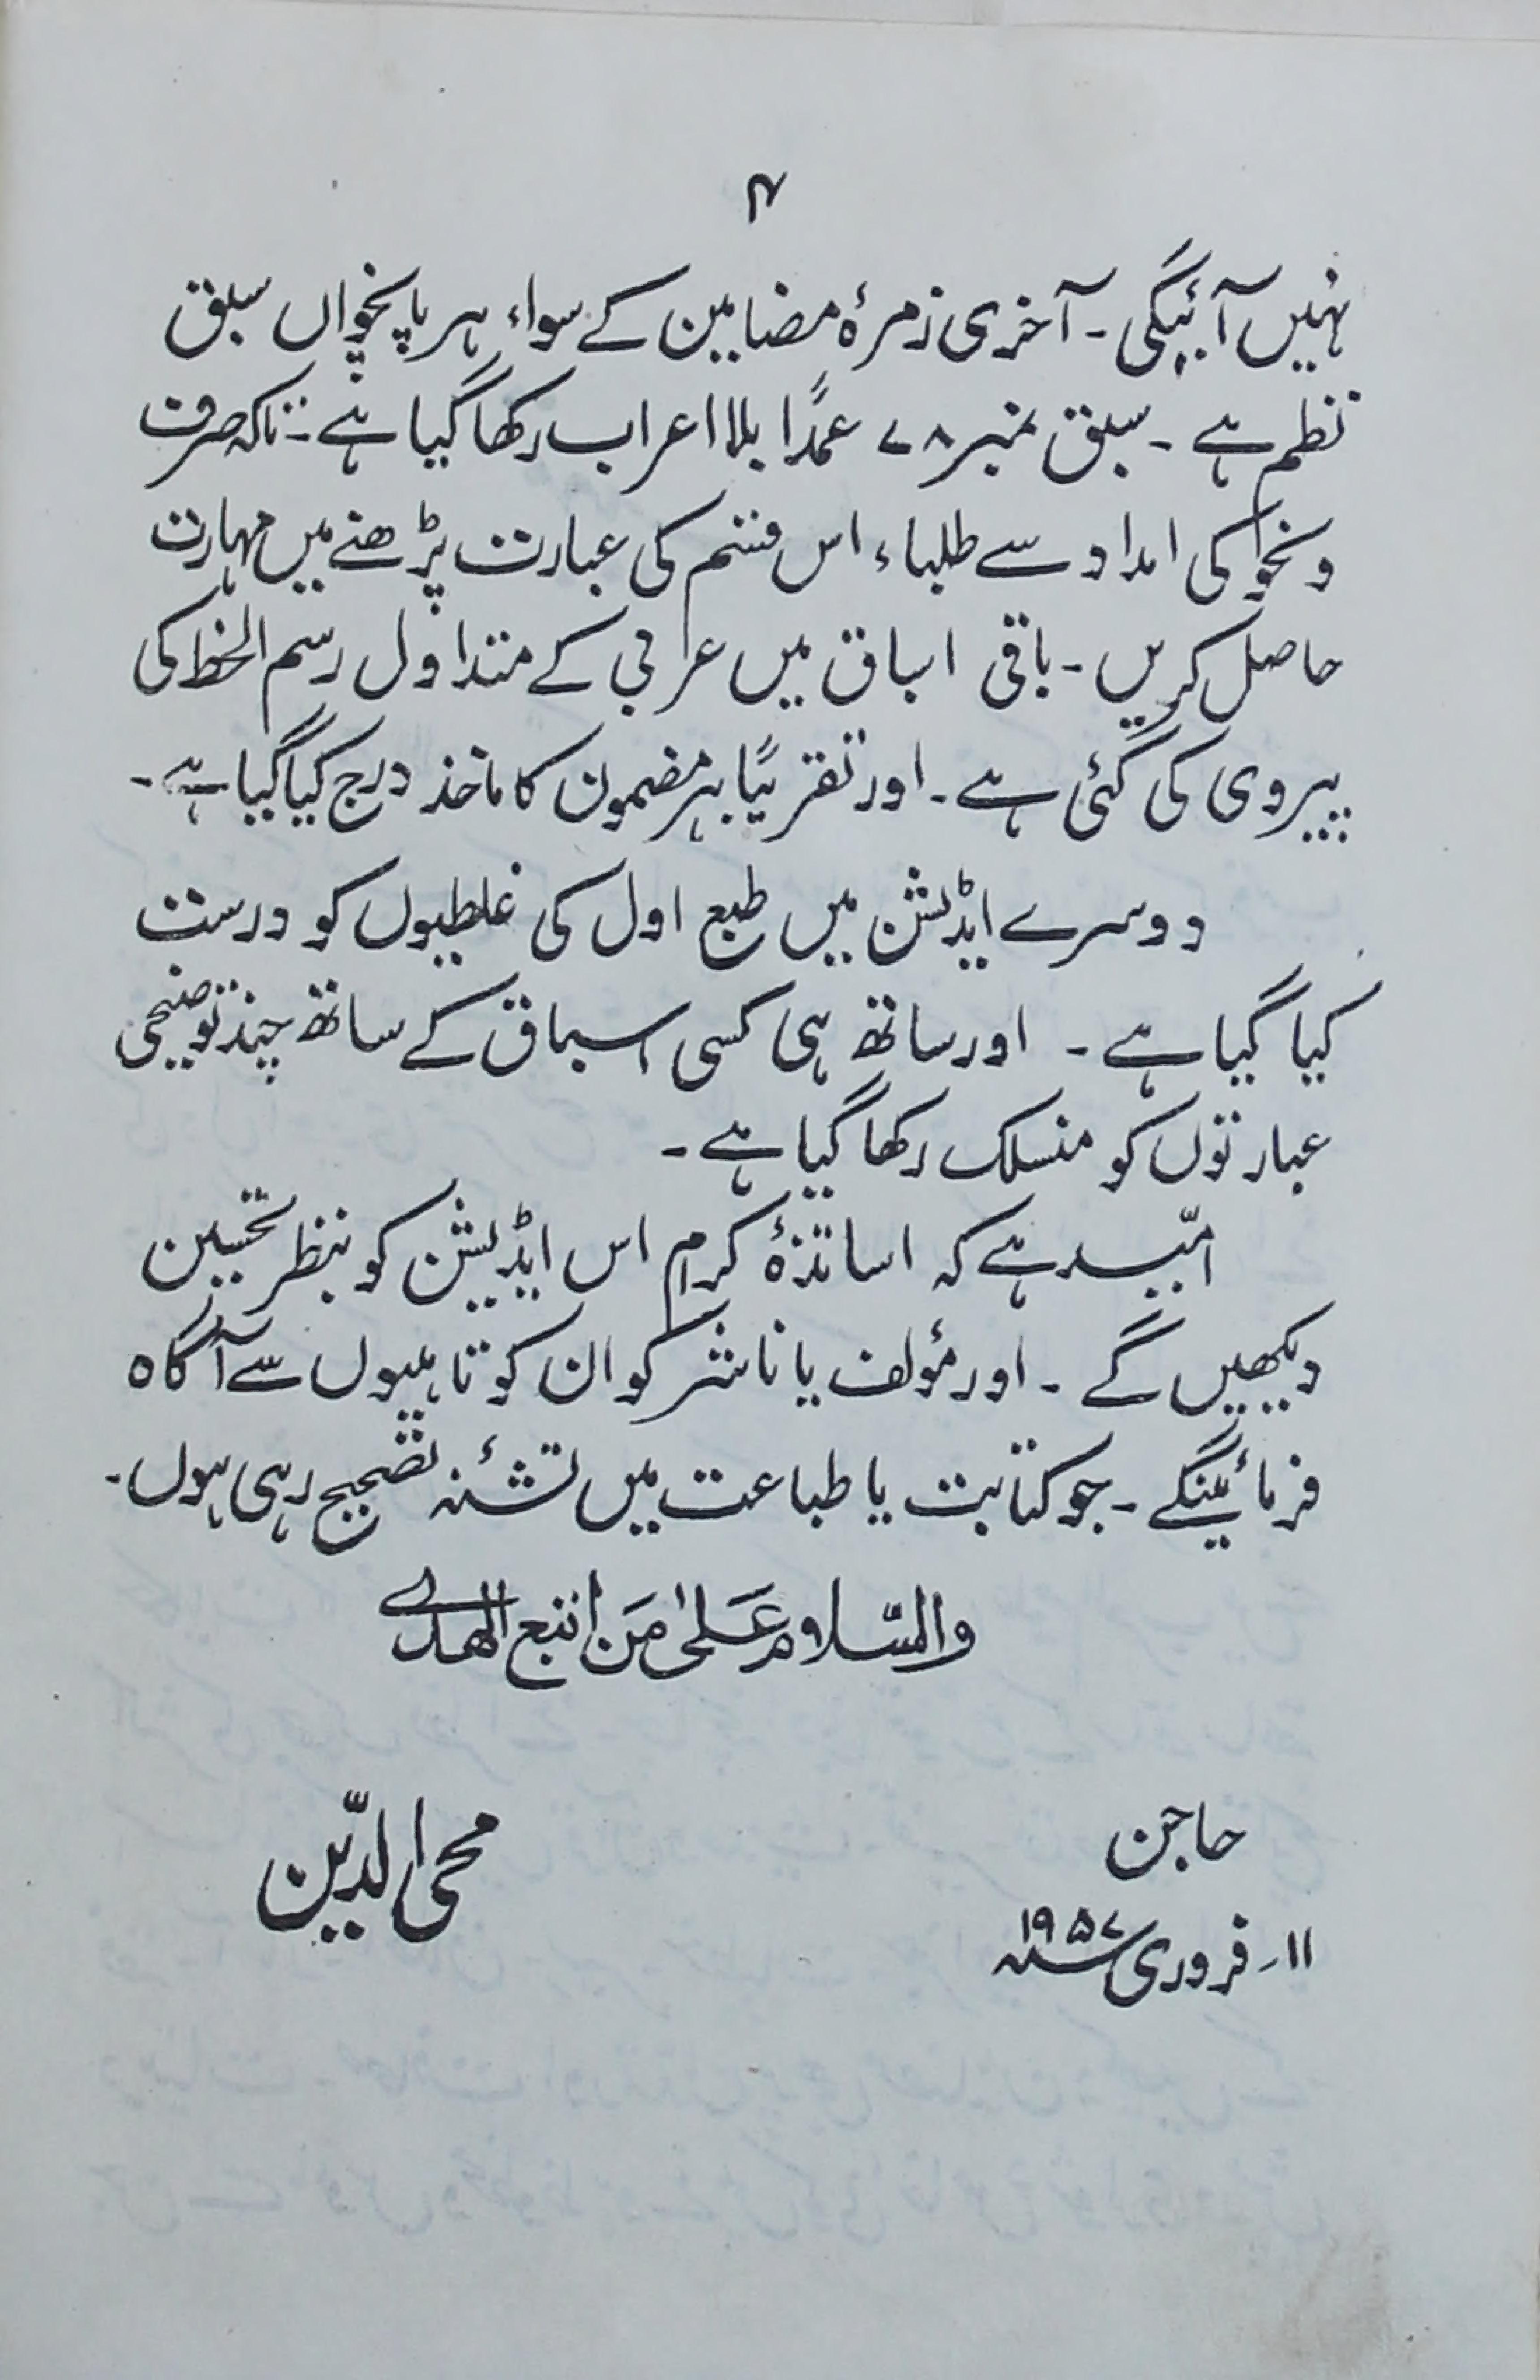 ۴
نہیں آئیگی۔ آخری زمرۂ مضامین کے سواء ہر پانچواں سبق
نظم ہے ۔ سبق نمبر ۷۸ عمدًا بلا اعراب رکھا گیا ہے۔ تاکہ صرف
و نحو کی امداد سے طلباء اس قسم کی عبارت پڑھنے میں مہارت
حاصل کریں۔ باقی اسباق میں عربی کے متداول رسم الخط کی
پیروی کی گئی ہے۔ اور تقریبًا ہر مضمون کا ماخذ درج کیا گیا ہے۔
دوسرے ایڈیشن میں طبع اول کی غلطیوں کو درست
کیا گیا ہے ۔ اور ساتھ ہی کسی اسباق کے ساتھ چند توضیحی
عبارتوں کو منسلک رکھا گیا ہے ۔
امّید ہے کہ اساتذۂ کرام اس ایڈیشن کو بنظر تحسین
دیکھیں گے ۔ اور مؤلف یا ناشر کو ان کوتاہیوں سے آگاہ
فرمائینگے ۔ جو کتابت یا طباعت میں تشنہ تصحیح رہی ہوں۔
والسّلام عَلیٰ مَن اتبع الھدٰے
حاجن
محی الدّین
۱۱۔ فروری ۱۹۵۷سنہ